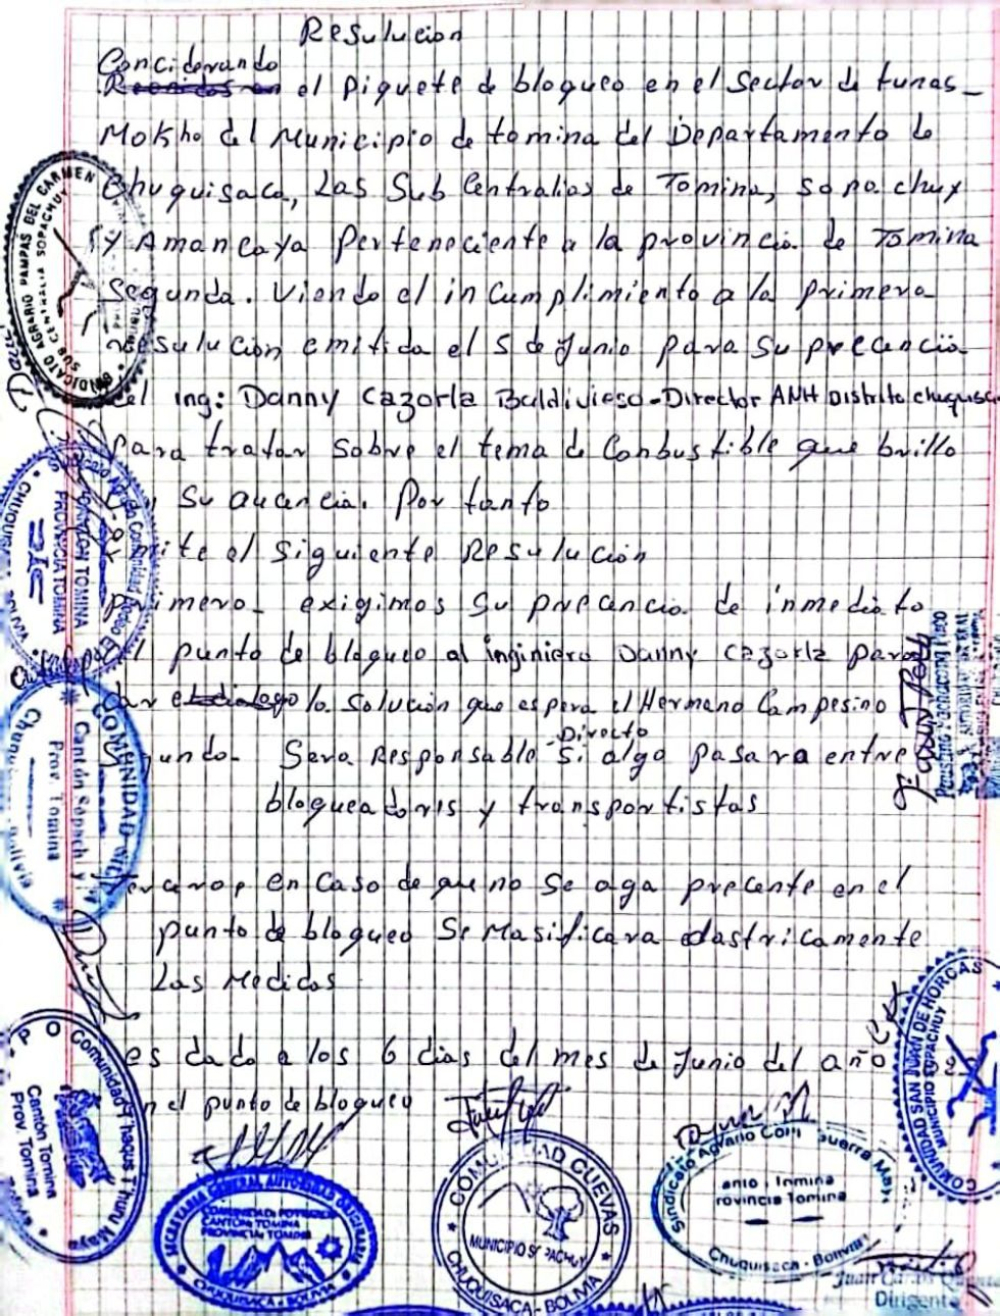 Resulucion
Conciderando
el Piquete de bloqueo en el Sector de tunas-
Mokho del Municipio de tomina del Departamento de
Chuquisaca, Las Sub Centralias de Tomina, sopachuy
y Amancaya Perteneciente a la provincia de Tomina
Segunda. Viendo el incumplimiento a la primera
resulucion emitida el 5 de Junio para su precencia
del ing: Danny Cazorla Baldivieso-Director ANH Distrito chuquisaca
para tratar sobre el tema de Conbustible que brillo
su aucencia. Por tanto
emite el siguiente Resulucion
primero- exigimos su precencia de inmediato
el punto de bloqueo al inginiero Danny Cazorla para
dar la solución que espera el Hermano Campesino
Segundo- Sera Responsable Directo si algo pasara entre
bloqueadoris y transportistas
tercero, en caso de que no se aga precente en el
punto de bloqueo Se Masificara dastricamente
Las Medidas
es dado a los 6 dias del mes de Junio del año
en el punto de bloqueo
SINDICATO AGRARIO PAMPAS DEL CARMEN
SUB CENTRALIA SOPACHUY
CANTON TOMINA
PROVINCIA TOMINA
COMUNIDAD
Cantón Sopachuy
Prov. Tomina
Comunidad Thaqos Thuru Mayu
Cantón Tomina
Prov Tomina
SECRETARIA GENERAL AUTORIDAD ORIGINARIA
CANTON TOMINA
PROVINCIA TOMINA
CHUQUISACA - BOLIVIA
COMUNIDAD CUEVAS
MUNICIPIO SOPACHUY
CHUQUISACA - BOLIVIA
Sindicato Agrario Com
Provincia Tomina
Chuquisaca - Bolivia
COMUNIDAD SAN JUAN DE HORCAS
MUNICIPIO SOPACHUY
Juan Carlos
Dirigente